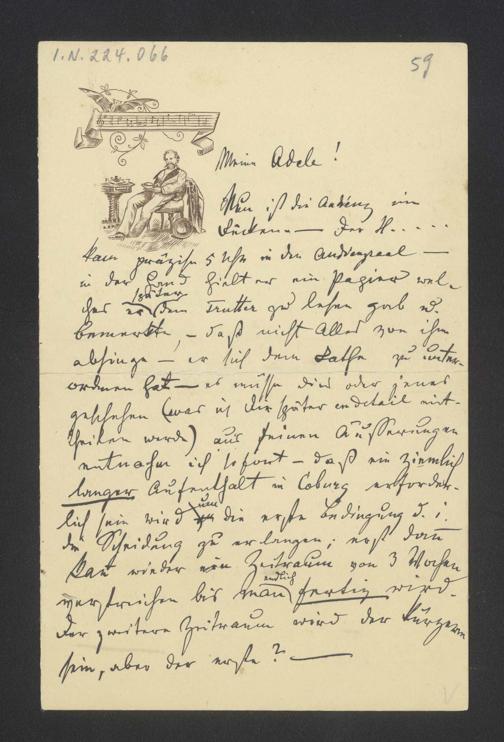 I.N. 224.066
59
Meine Adele!
Nun ist die Audienz im
Rücken — Der H.....
kam präzise 5 Uhr in den Audienzsaal —
in der Hand hielt er ein Papier wel-
ches er später dem Trutter zu lesen gab u.
bemerkte, — daß nicht Alles von ihm
abhinge — er sich dem Rathe zu unter-
ordnen hat — es müsse dies oder jenes
geschehen (was ich Dir später en detail mit-
theilen werde) aus seinen Äusserungen
entnahm ich sofort — daß ein ziemlich
langer Aufenthalt in Coburg erforder-
lich sein wird um die erste Bedingung d. i.
die Scheidung zu erlangen; erst dann
kann wieder ein Zeitraum von 3 Wochen
verstreichen bis man endlich fertig wird.
Der zweitere Zeitraum wird der kürzere
sein, aber der erste? —